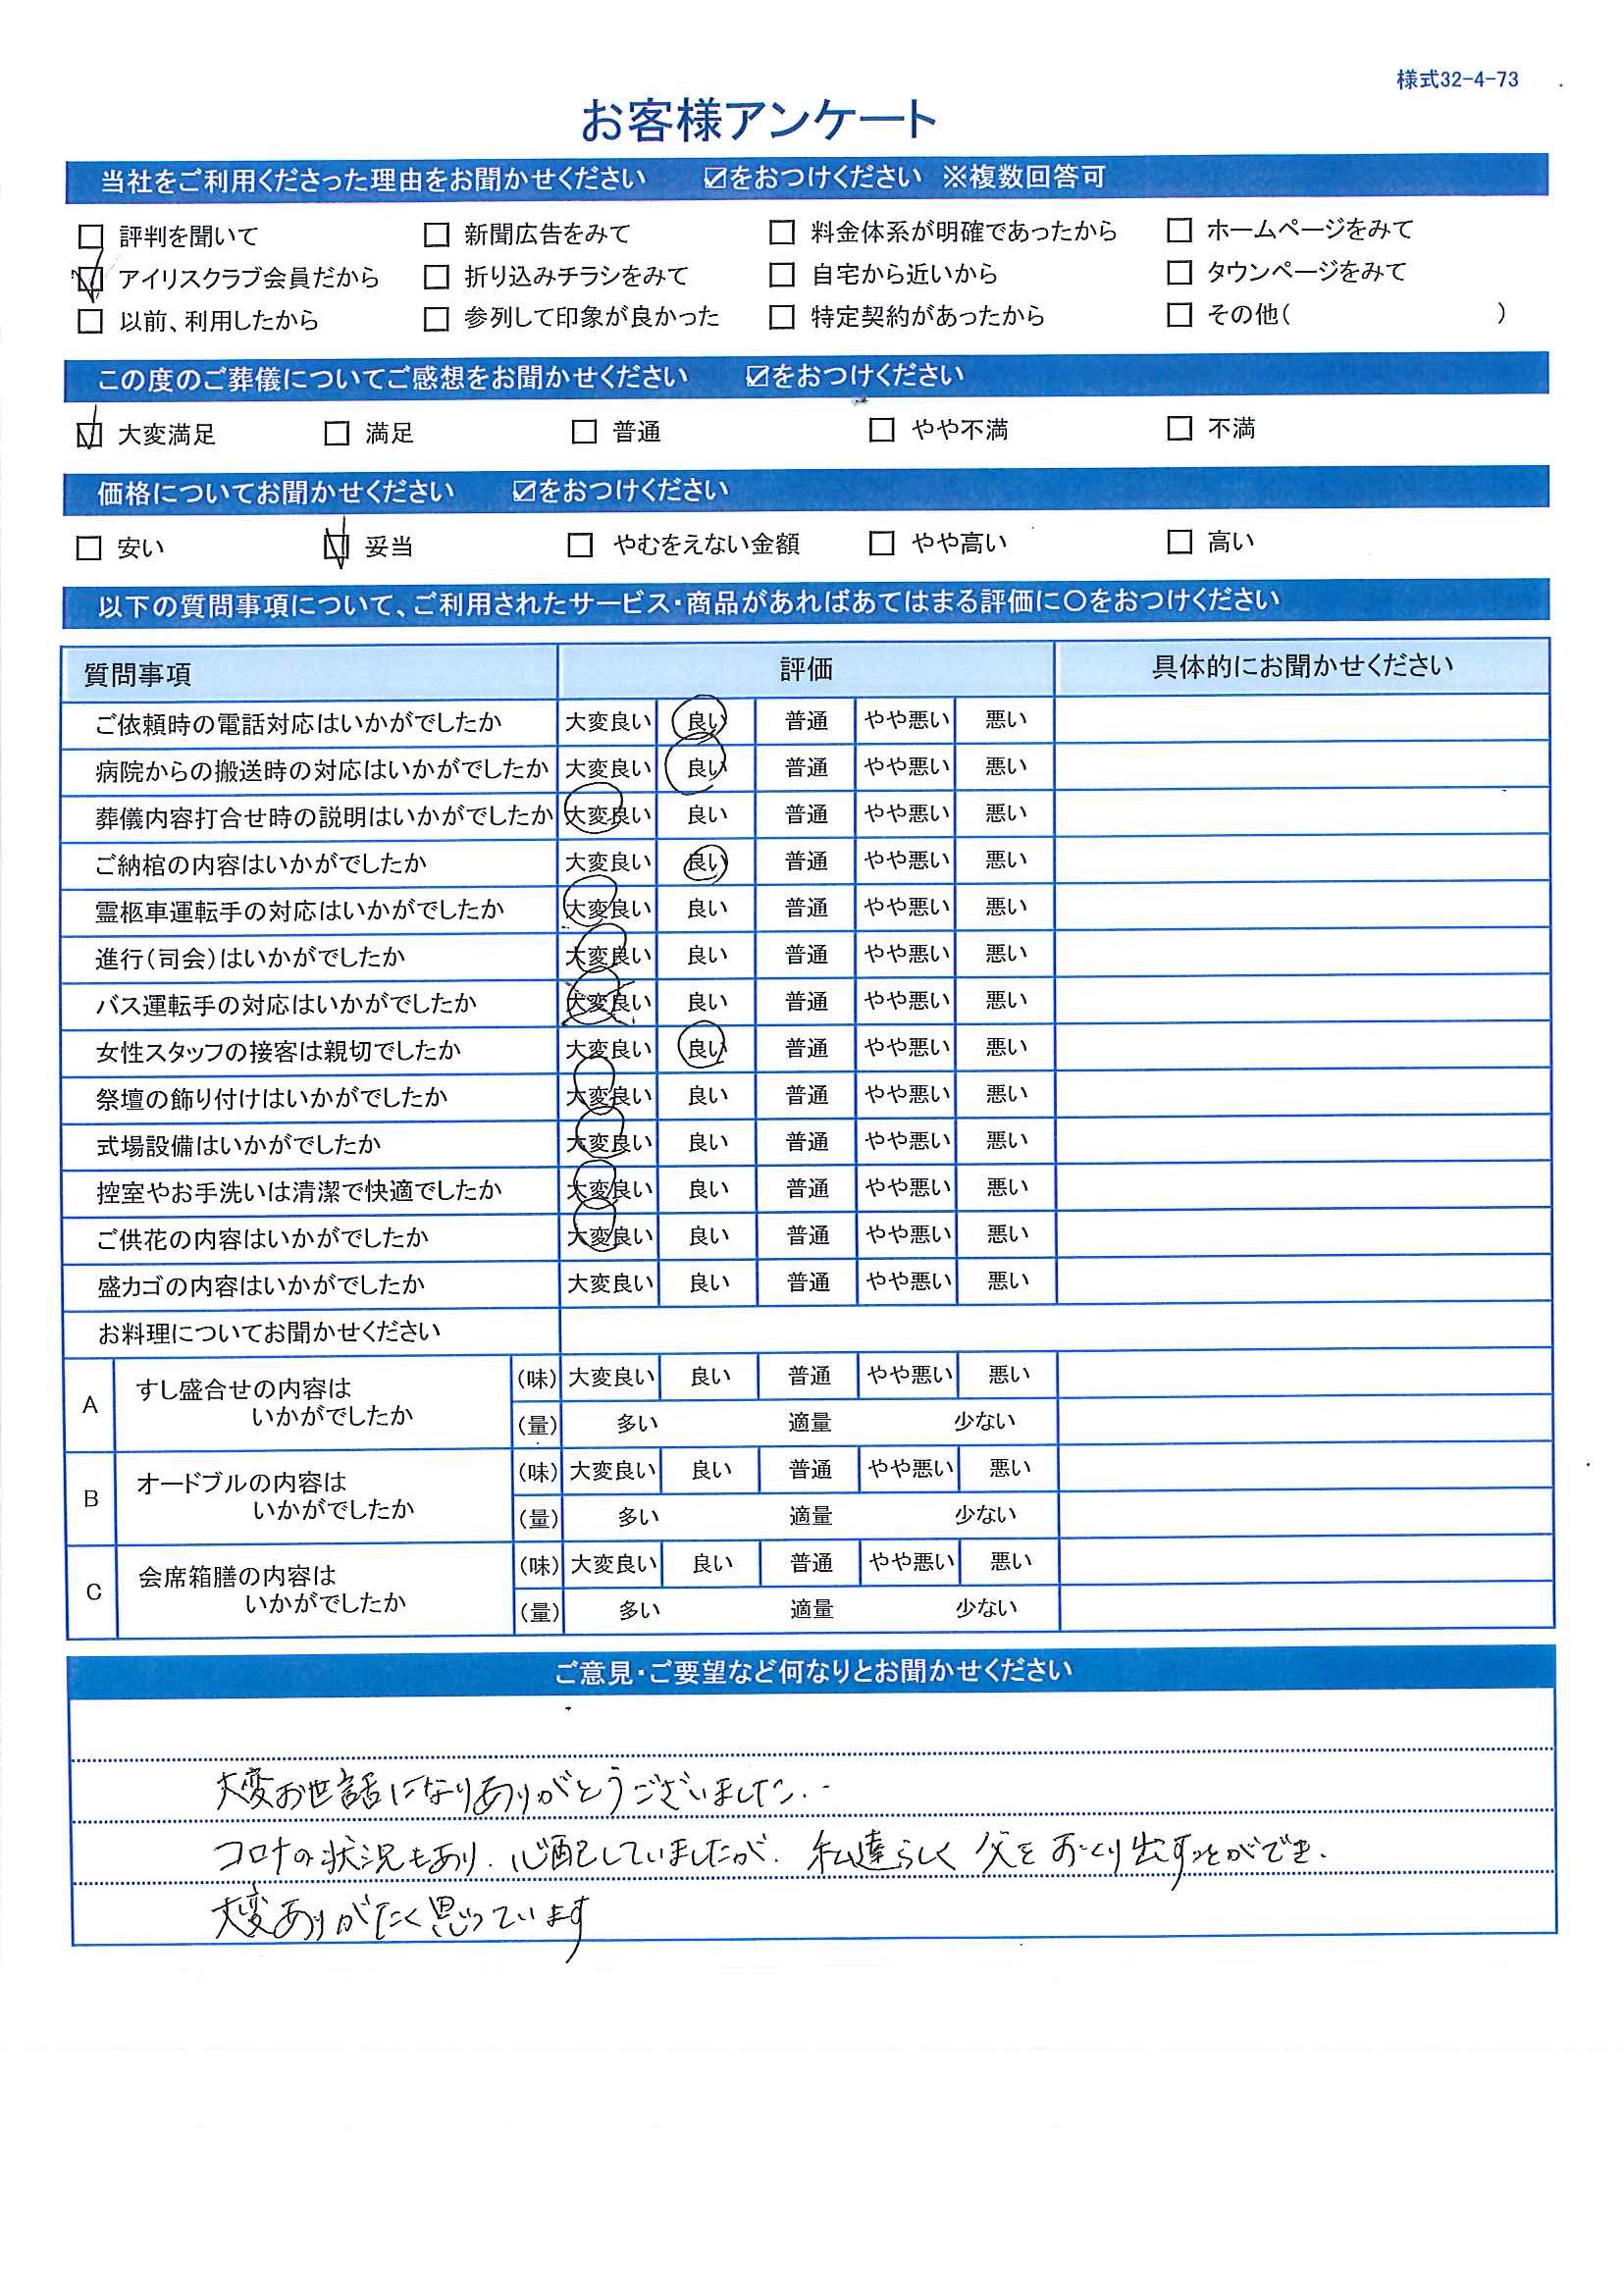 様式32-4-73
お客様アンケート
当社をご利用くださった理由をお聞かせください ☑をおつけください ※複数回答可
□ 評判を聞いて □ 新聞広告をみて □ 料金体系が明確であったから □ ホームページをみて
☑ アイリスクラブ会員だから □ 折り込みチラシをみて □ 自宅から近いから □ タウンページをみて
□ 以前、利用したから □ 参列して印象が良かった □ 特定契約があったから □ その他( )
この度のご葬儀についてご感想をお聞かせください ☑をおつけください
☑ 大変満足 □ 満足 □ 普通 □ やや不満 □ 不満
価格についてお聞かせください ☑をおつけください
□ 安い ☑ 妥当 □ やむをえない金額 □ やや高い □ 高い
以下の質問事項について、ご利用されたサービス・商品があればあてはまる評価に〇をおつけください
質問事項 評価 具体的にお聞かせください
ご依頼時の電話対応はいかがでしたか 大変良い 良い 普通 やや悪い 悪い
病院からの搬送時の対応はいかがでしたか 大変良い 良い 普通 やや悪い 悪い
葬儀内容打合せ時の説明はいかがでしたか 大変良い 良い 普通 やや悪い 悪い
ご納棺の内容はいかがでしたか 大変良い 良い 普通 やや悪い 悪い
霊柩車運転手の対応はいかがでしたか 大変良い 良い 普通 やや悪い 悪い
進行(司会)はいかがでしたか 大変良い 良い 普通 やや悪い 悪い
バス運転手の対応はいかがでしたか 大変良い 良い 普通 やや悪い 悪い
女性スタッフの接客は親切でしたか 大変良い 良い 普通 やや悪い 悪い
祭壇の飾り付けはいかがでしたか 大変良い 良い 普通 やや悪い 悪い
式場設備はいかがでしたか 大変良い 良い 普通 やや悪い 悪い
控室やお手洗いは清潔で快適でしたか 大変良い 良い 普通 やや悪い 悪い
ご供花の内容はいかがでしたか 大変良い 良い 普通 やや悪い 悪い
盛カゴの内容はいかがでしたか 大変良い 良い 普通 やや悪い 悪い
お料理についてお聞かせください
A すし盛合せの内容は (味) 大変良い 良い 普通 やや悪い 悪い
いかがでしたか (量) 多い 適量 少ない
B オードブルの内容は (味) 大変良い 良い 普通 やや悪い 悪い
いかがでしたか (量) 多い 適量 少ない
C 会席箱膳の内容は (味) 大変良い 良い 普通 やや悪い 悪い
いかがでしたか (量) 多い 適量 少ない
ご意見・ご要望など何なりとお聞かせください
大変お世話になりありがとうございました.
コロナの状況もあり、心配していましたが、私達らしく父をおくり出すことができ、
大変ありがたく思っています